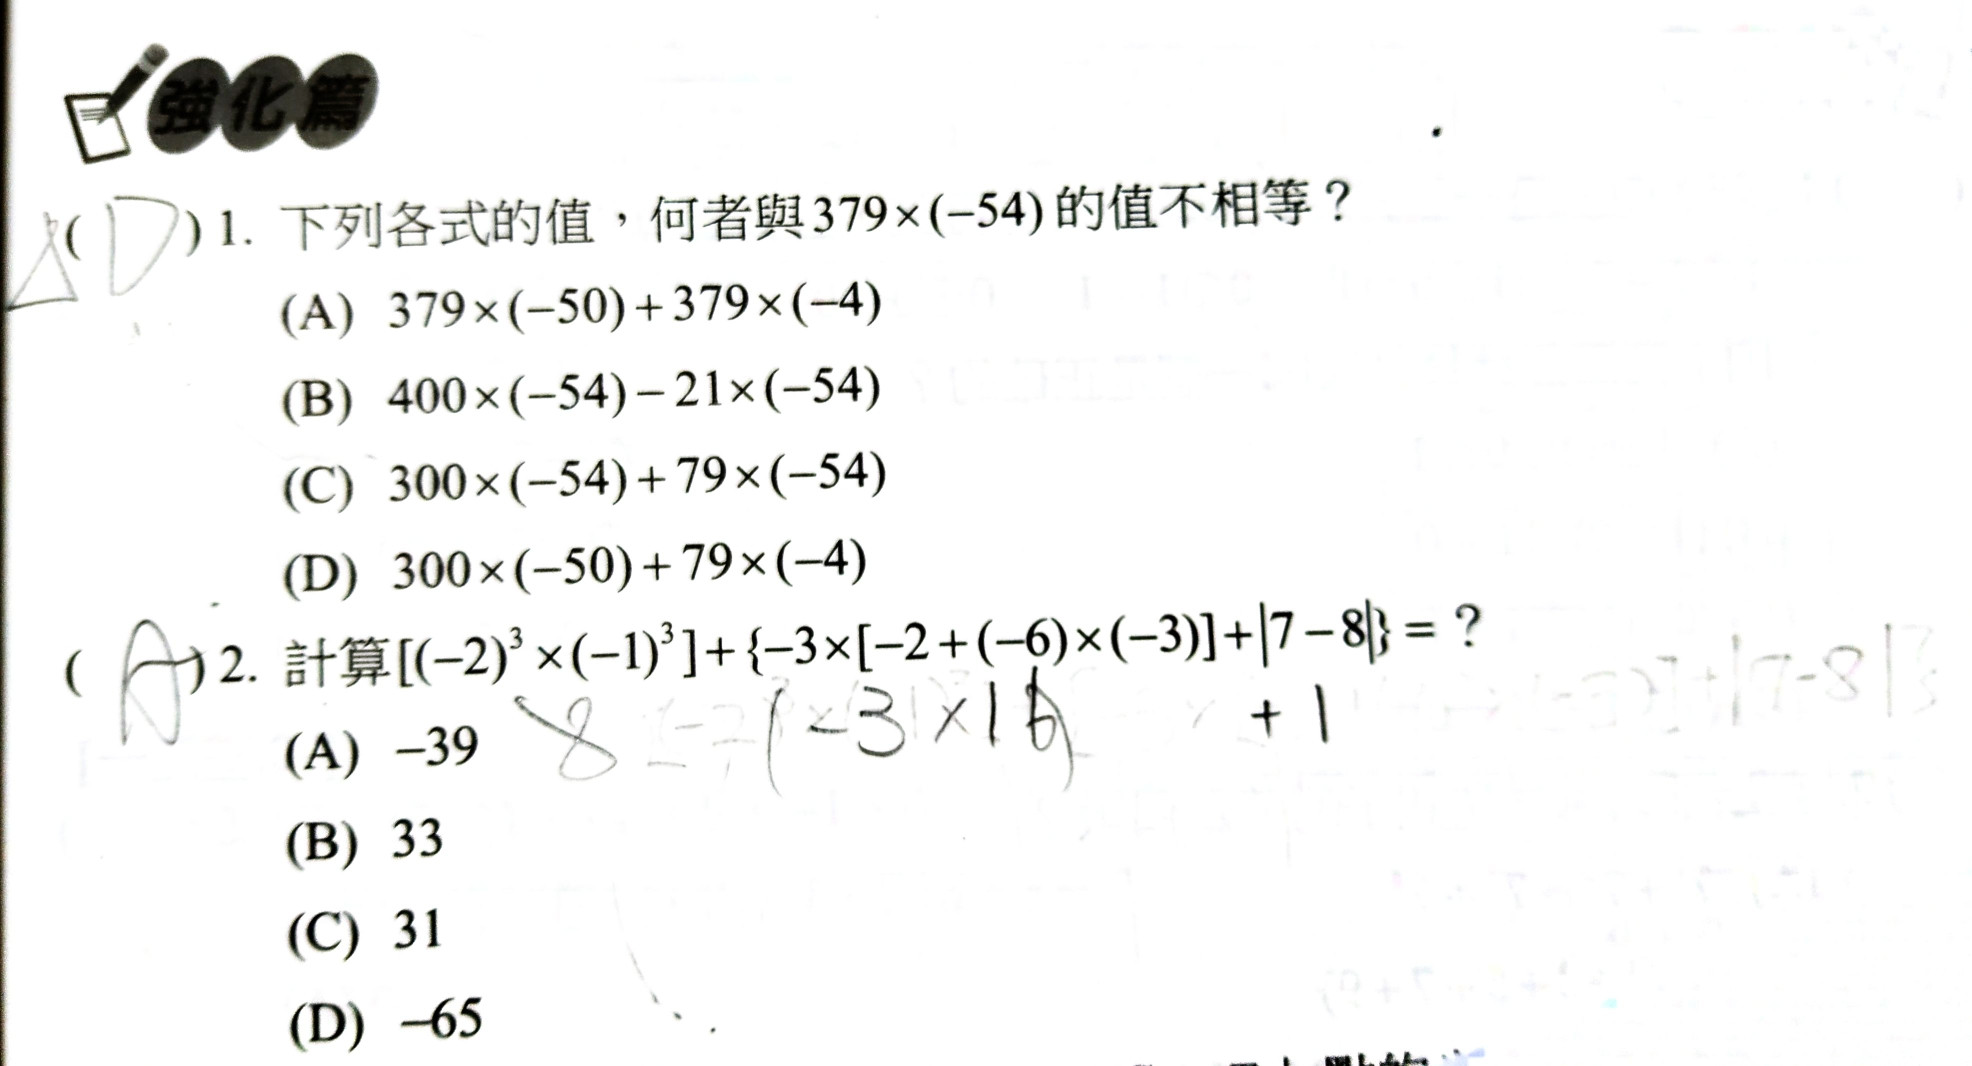 強化篇
( D ) 1. 下列各式的值，何者與379×(−54)的值不相等？
(A) 379×(−50)+379×(−4)
(B) 400×(−54)−21×(−54)
(C) 300×(−54)+79×(−54)
(D) 300×(−50)+79×(−4)
( A ) 2. 計算[(−2)³×(−1)³]+{−3×[−2+(−6)×(−3)]+|7−8|}=？
8 (−3×16) +1
(A) −39
(B) 33
(C) 31
(D) −65